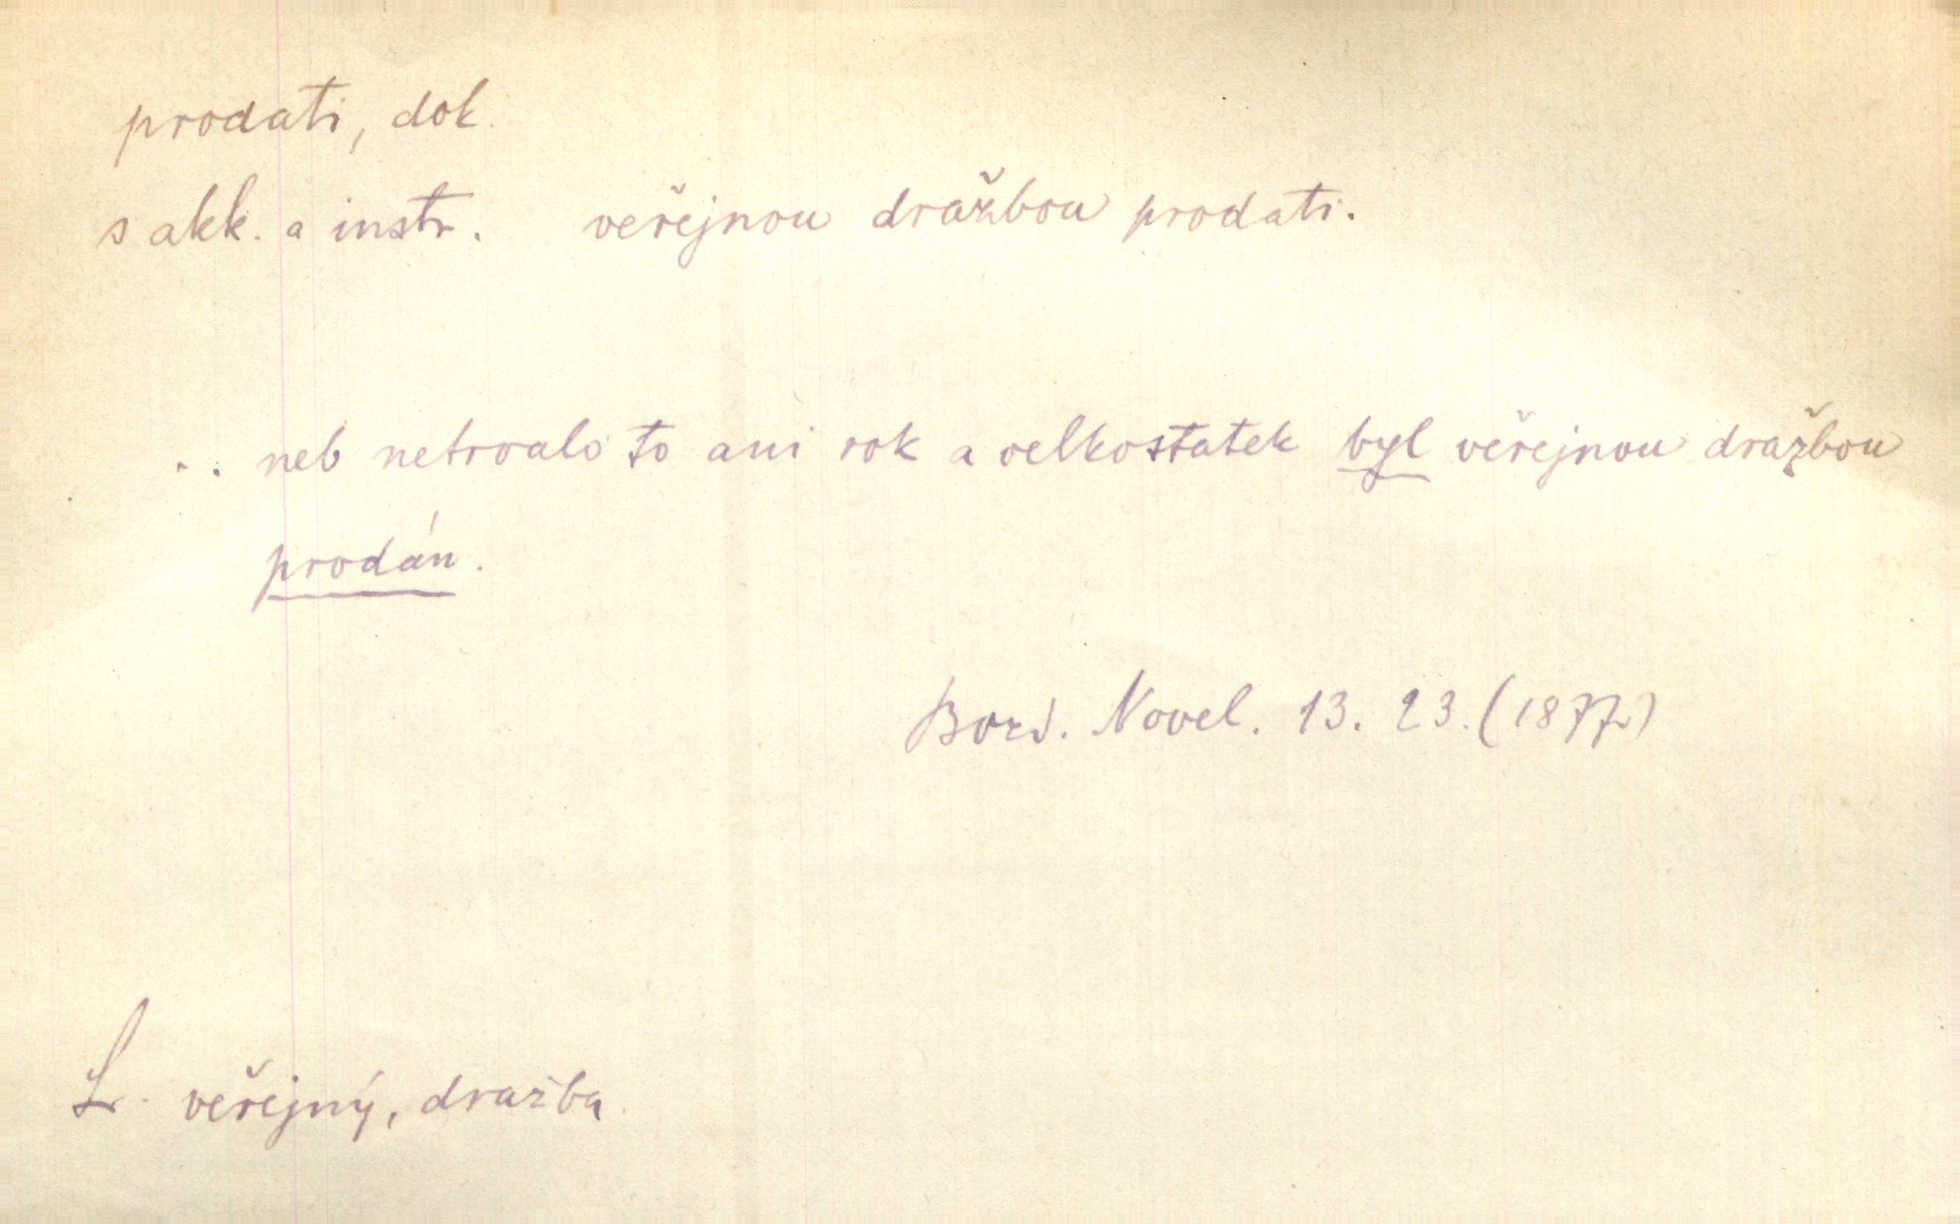 prodati, dok.
s akk. a instr. veřejnou dražbou prodati.
.. neb netrvalo to ani rok a velkostatek byl veřejnou dražbou
prodán.
Novel. 13. 23. (1877)
L. veřejný, dražba